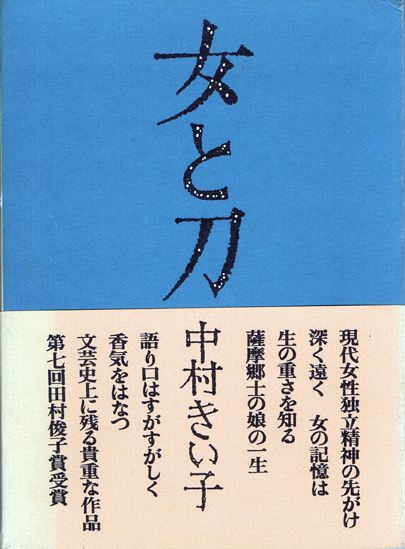 女と刀
中村きい子
現代女性独立精神の先がけ
深く遠く　女の記憶は
生の重さを知る
薩摩郷士の娘の一生
語り口はすがすがしく
香気をはなつ
文芸史上に残る貴重な作品
第七回田村俊子賞受賞